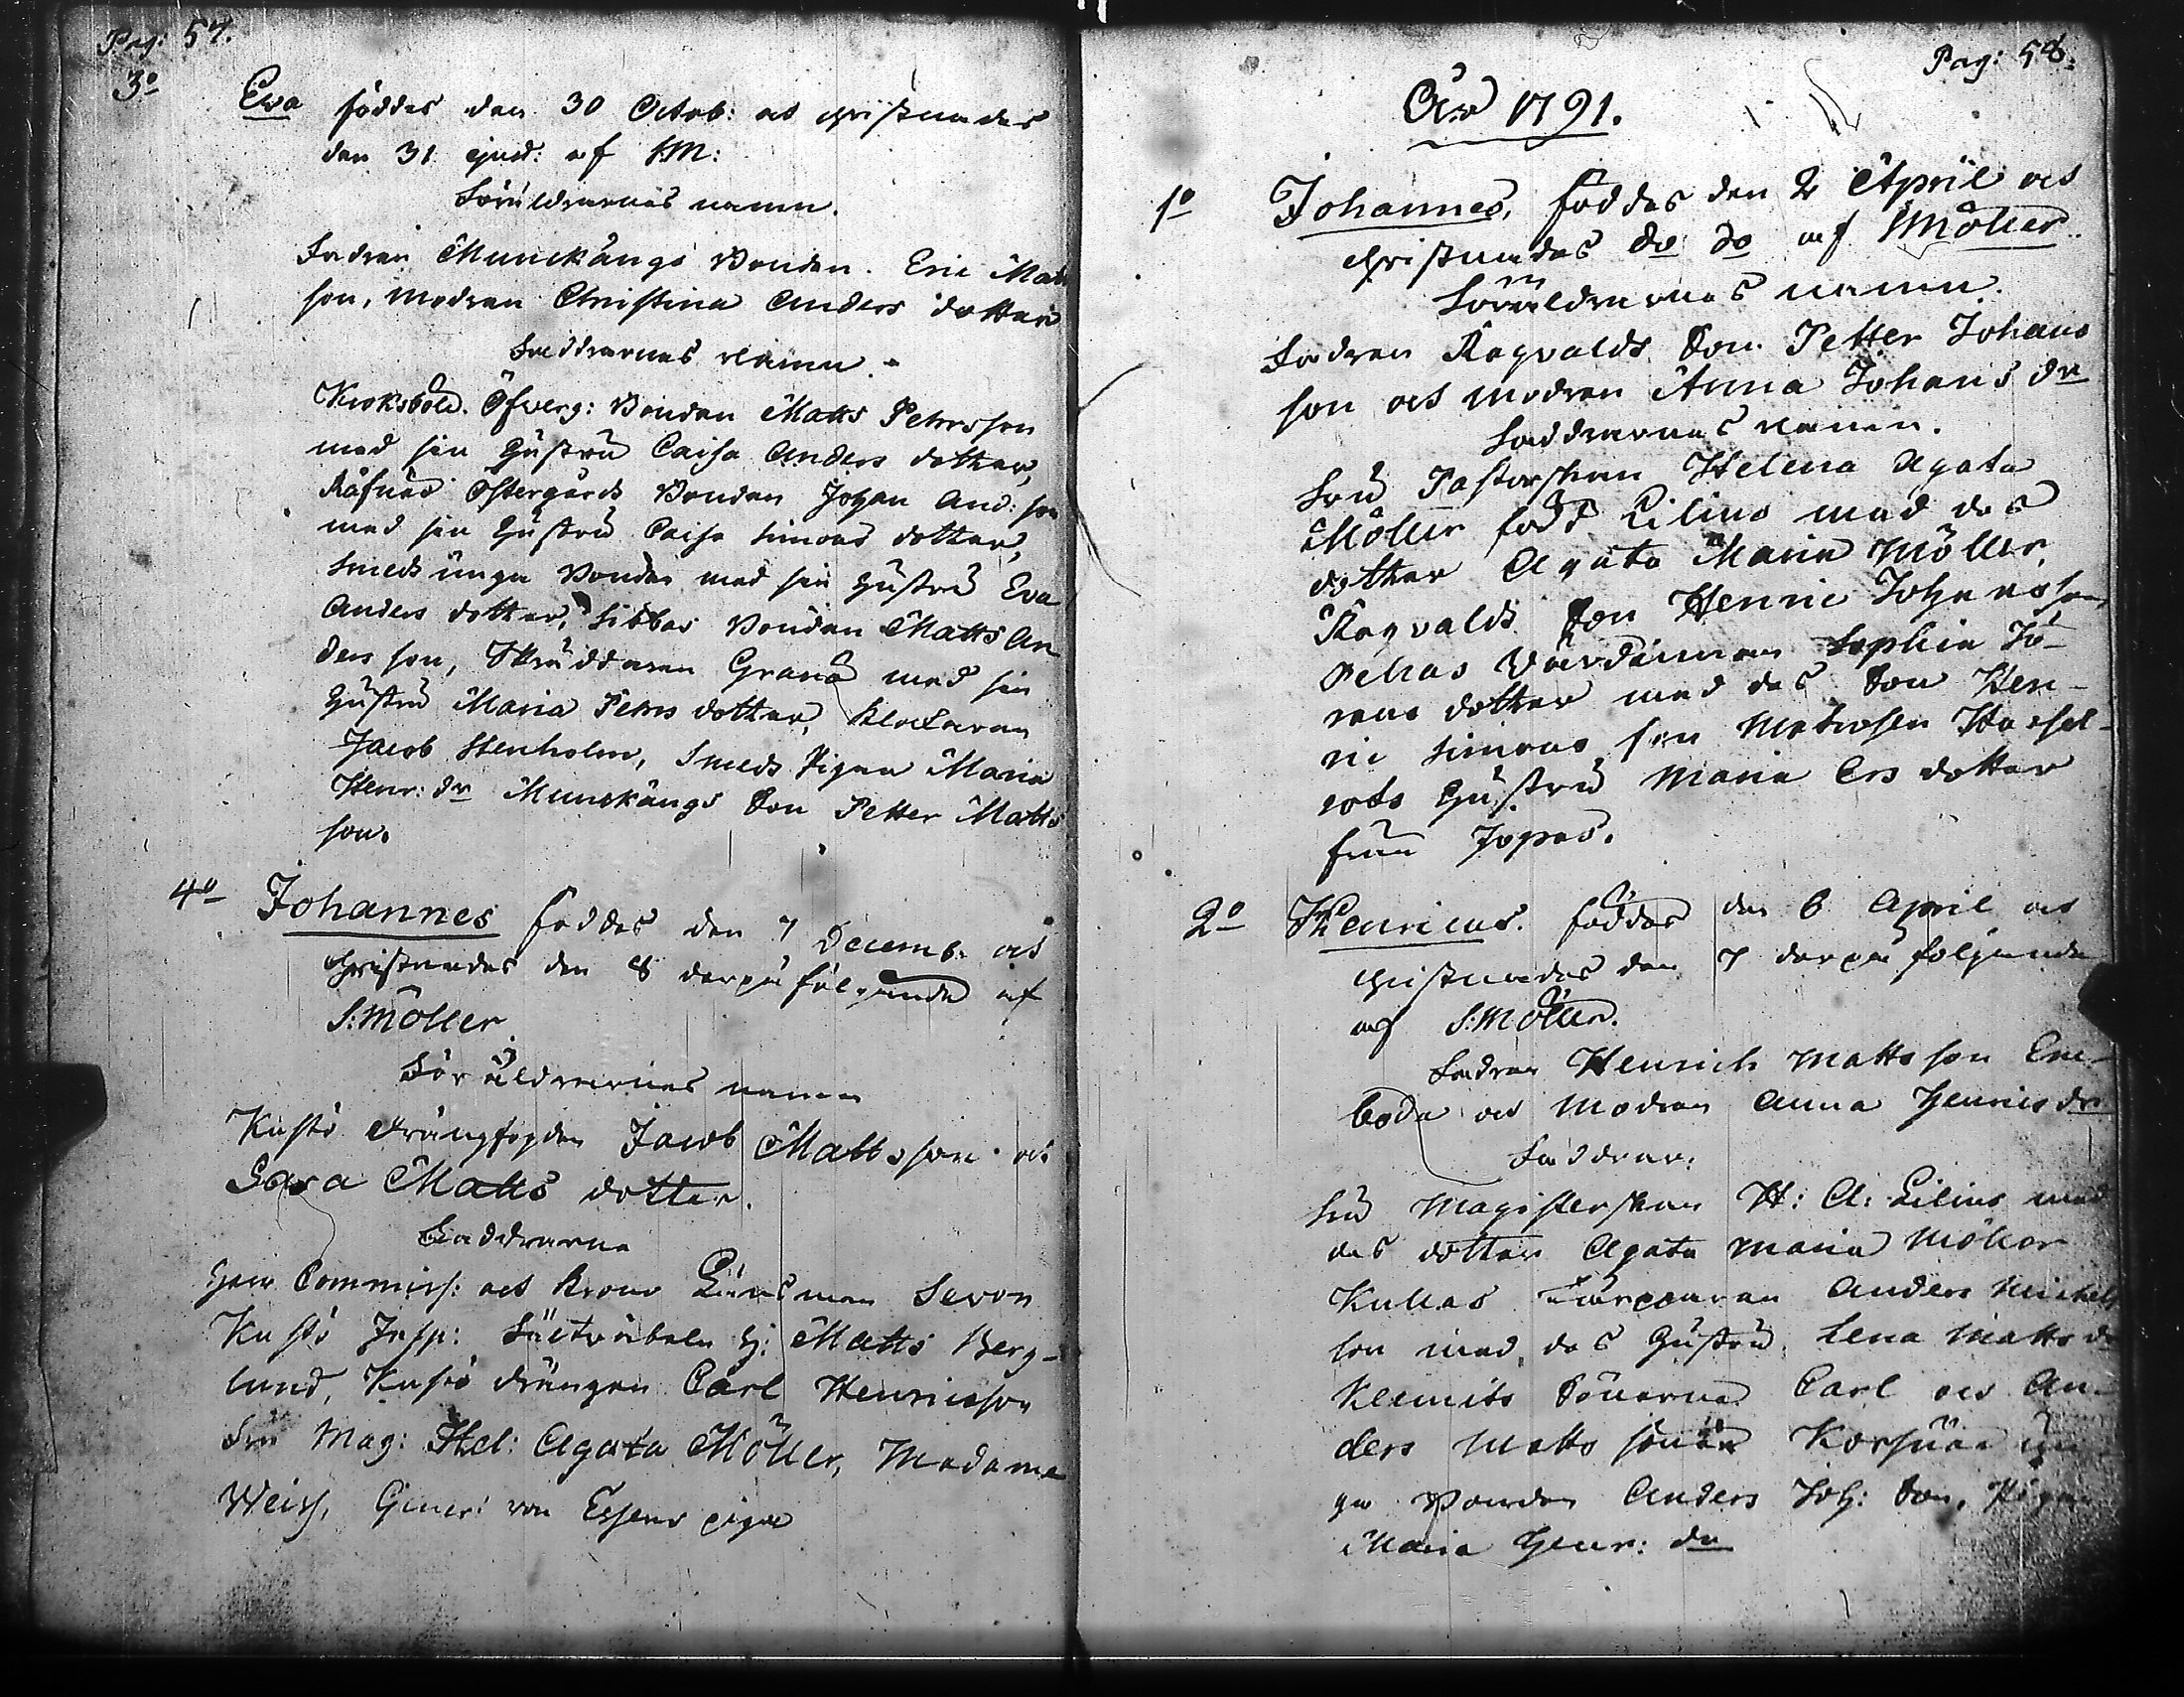 Pag: 57.
3o
Eva föddes den 30 Octob: och christnades
den 31 ejusd: af S:M:
Föräldrarnes namn.
Fadren Munckängs Bonden Eric Mats
son, modren Christina Anders dotter
Faddrarnes namn.
Kroksböle Öfverg: Bonden Matts Pehrsson
med sin Hustru Caisa Anders dotter,
Räfnäs Östergårds Bonden Johan And: son
med sin Hustru Caisa Simons dotter,
Smeds unga Bonden med sin Hustru Eva
Anders dotter, Sibbas Bonden Matts An
ders son, Skräddaren Granö med sin
Hustru Maria Pehrs dotter, Klockaren
Jacob Stenholm, Smeds Pigan Maria
Henr: dr Munckängs Son Petter Matts
son.
4o
Johannes föddes den 7 Decemb. och
Christnades den 8 derpå föl,jande af
S: Möller
Föräldrarnes namn
Kustö drängfogden Jacob Mattsson och
Sara Matts dotter.
Faddrarne
Herr Commiss: och Krono Länsman Sevon
Kustö Insp: Fältväbeln H: Matts Berg-
lund, Kustö drängen Carl Henricsson
Fru Mag: Hel: Agata Möller, Madame
Weiss, Gener: von Essens piga
Pag: 58.
År 1791.
1o
Johannes, föddes den 2 April och
christnades do do af Möller
Föräldrarnes namn.
Fadren Ragvalds Son Petter Johans
son och modren Anna Johans dr
Faddrarnes namn.
Fru Pastorskan Helena Agata
Möller född Lilius med des
dotter Agata Maria Möller,
Ragvalds Son Henric Johansson
Pehas Värdinnan Sophia Jö-
rans dotter med des Son Hen-
ric Simons son Matrosen
Hustru Maria Ers dotter
från Jopas.
2o
Henricus. föddes den 6 April och
christnades den 7 derpå följande
af S: Möller.
Fadren Henrich Matts son Ene-
boda och Modren Anna Henrics dr
Faddrar.
Fru Magisterskan H: A: Lilius med
des dotter Agata Maria Möller
Kullas Torparen Anders Michels
son med des Hustru Lena Matts dr
Klemits Sönerne Carl och An-
ders Matts söner Korsnäs un
ga Bonden Anders Joh: Son, Pigan
Maria Henr: dr